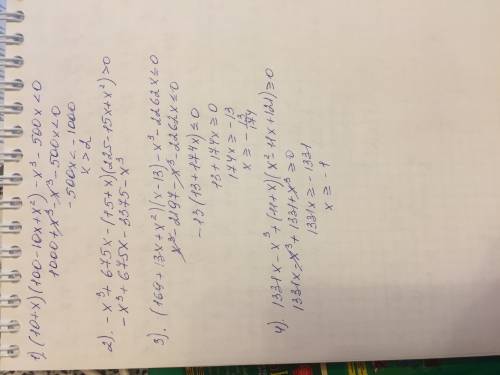 1) (10+x)(100-10x+x²)-x³-500x<0
1000+x³-x³-500x<0
-500x<-1000
x>2
2). -x³+675x-(15+x)(225-15x+x²)>0
-x³+675x-3375-x³
3). (169+13x+x²)(x-13)-x³-2262x≤0
x³-2197-x³-2262x≤0
-13(13+174x)≤0
13+174x≥0
174x≥-13
x≥-13/174
4). 1331x-x³+(11+x)(x²-11x+121)≥0
1331x-x³+1331+x³≥0
1331x≥-1331
x≥-1